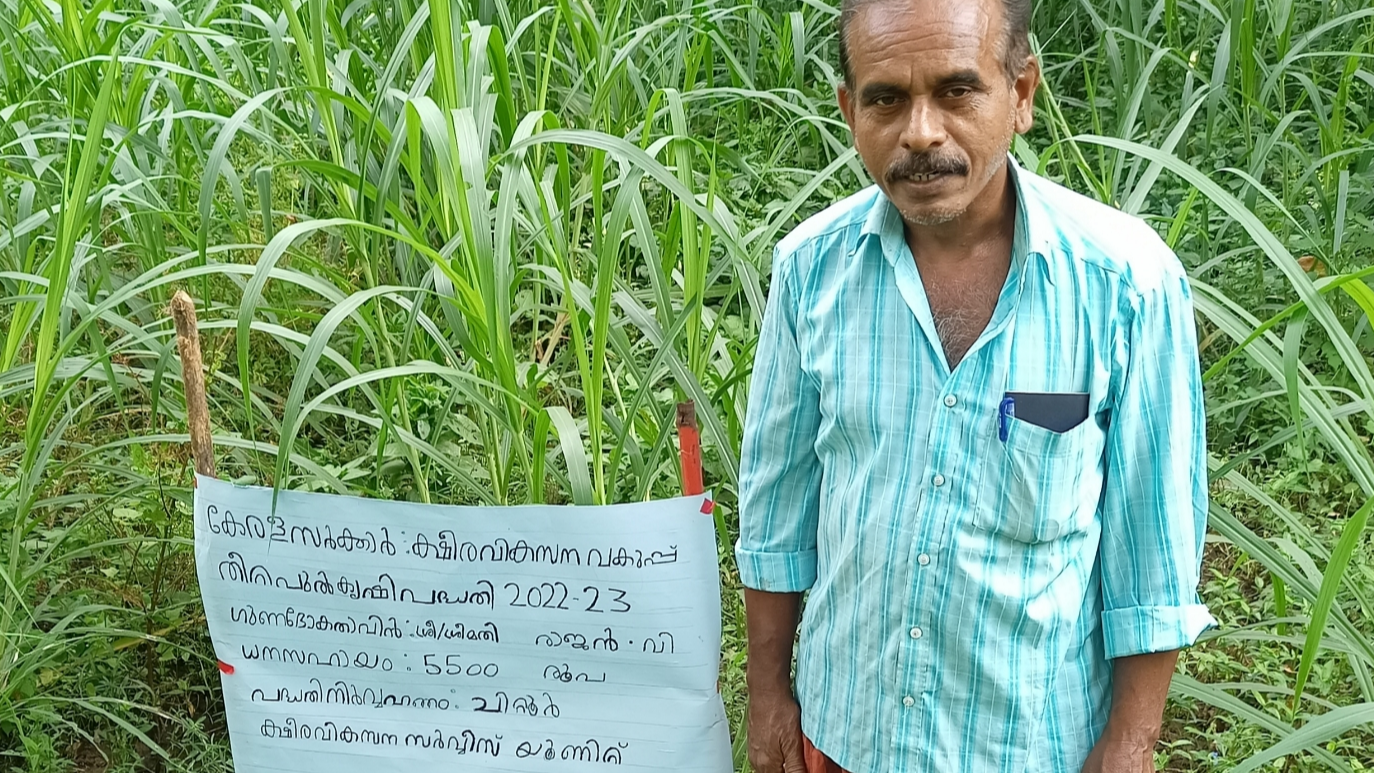 കേരള സർക്കാർ : ക്ഷീരവികസന വകുപ്പ്
തീറ്റപുൽകൃഷി പദ്ധതി 2022-23
ഗുണഭോക്താവിൻ : ശ്രീ/ശ്രീമതി രാജൻ . വി
ധനസഹായം : 5500 രൂപ
പദ്ധതി നിർവ്വഹണം : ചിറ്റൂർ
ക്ഷീരവികസന സർവ്വീസ് യൂണിറ്റ്